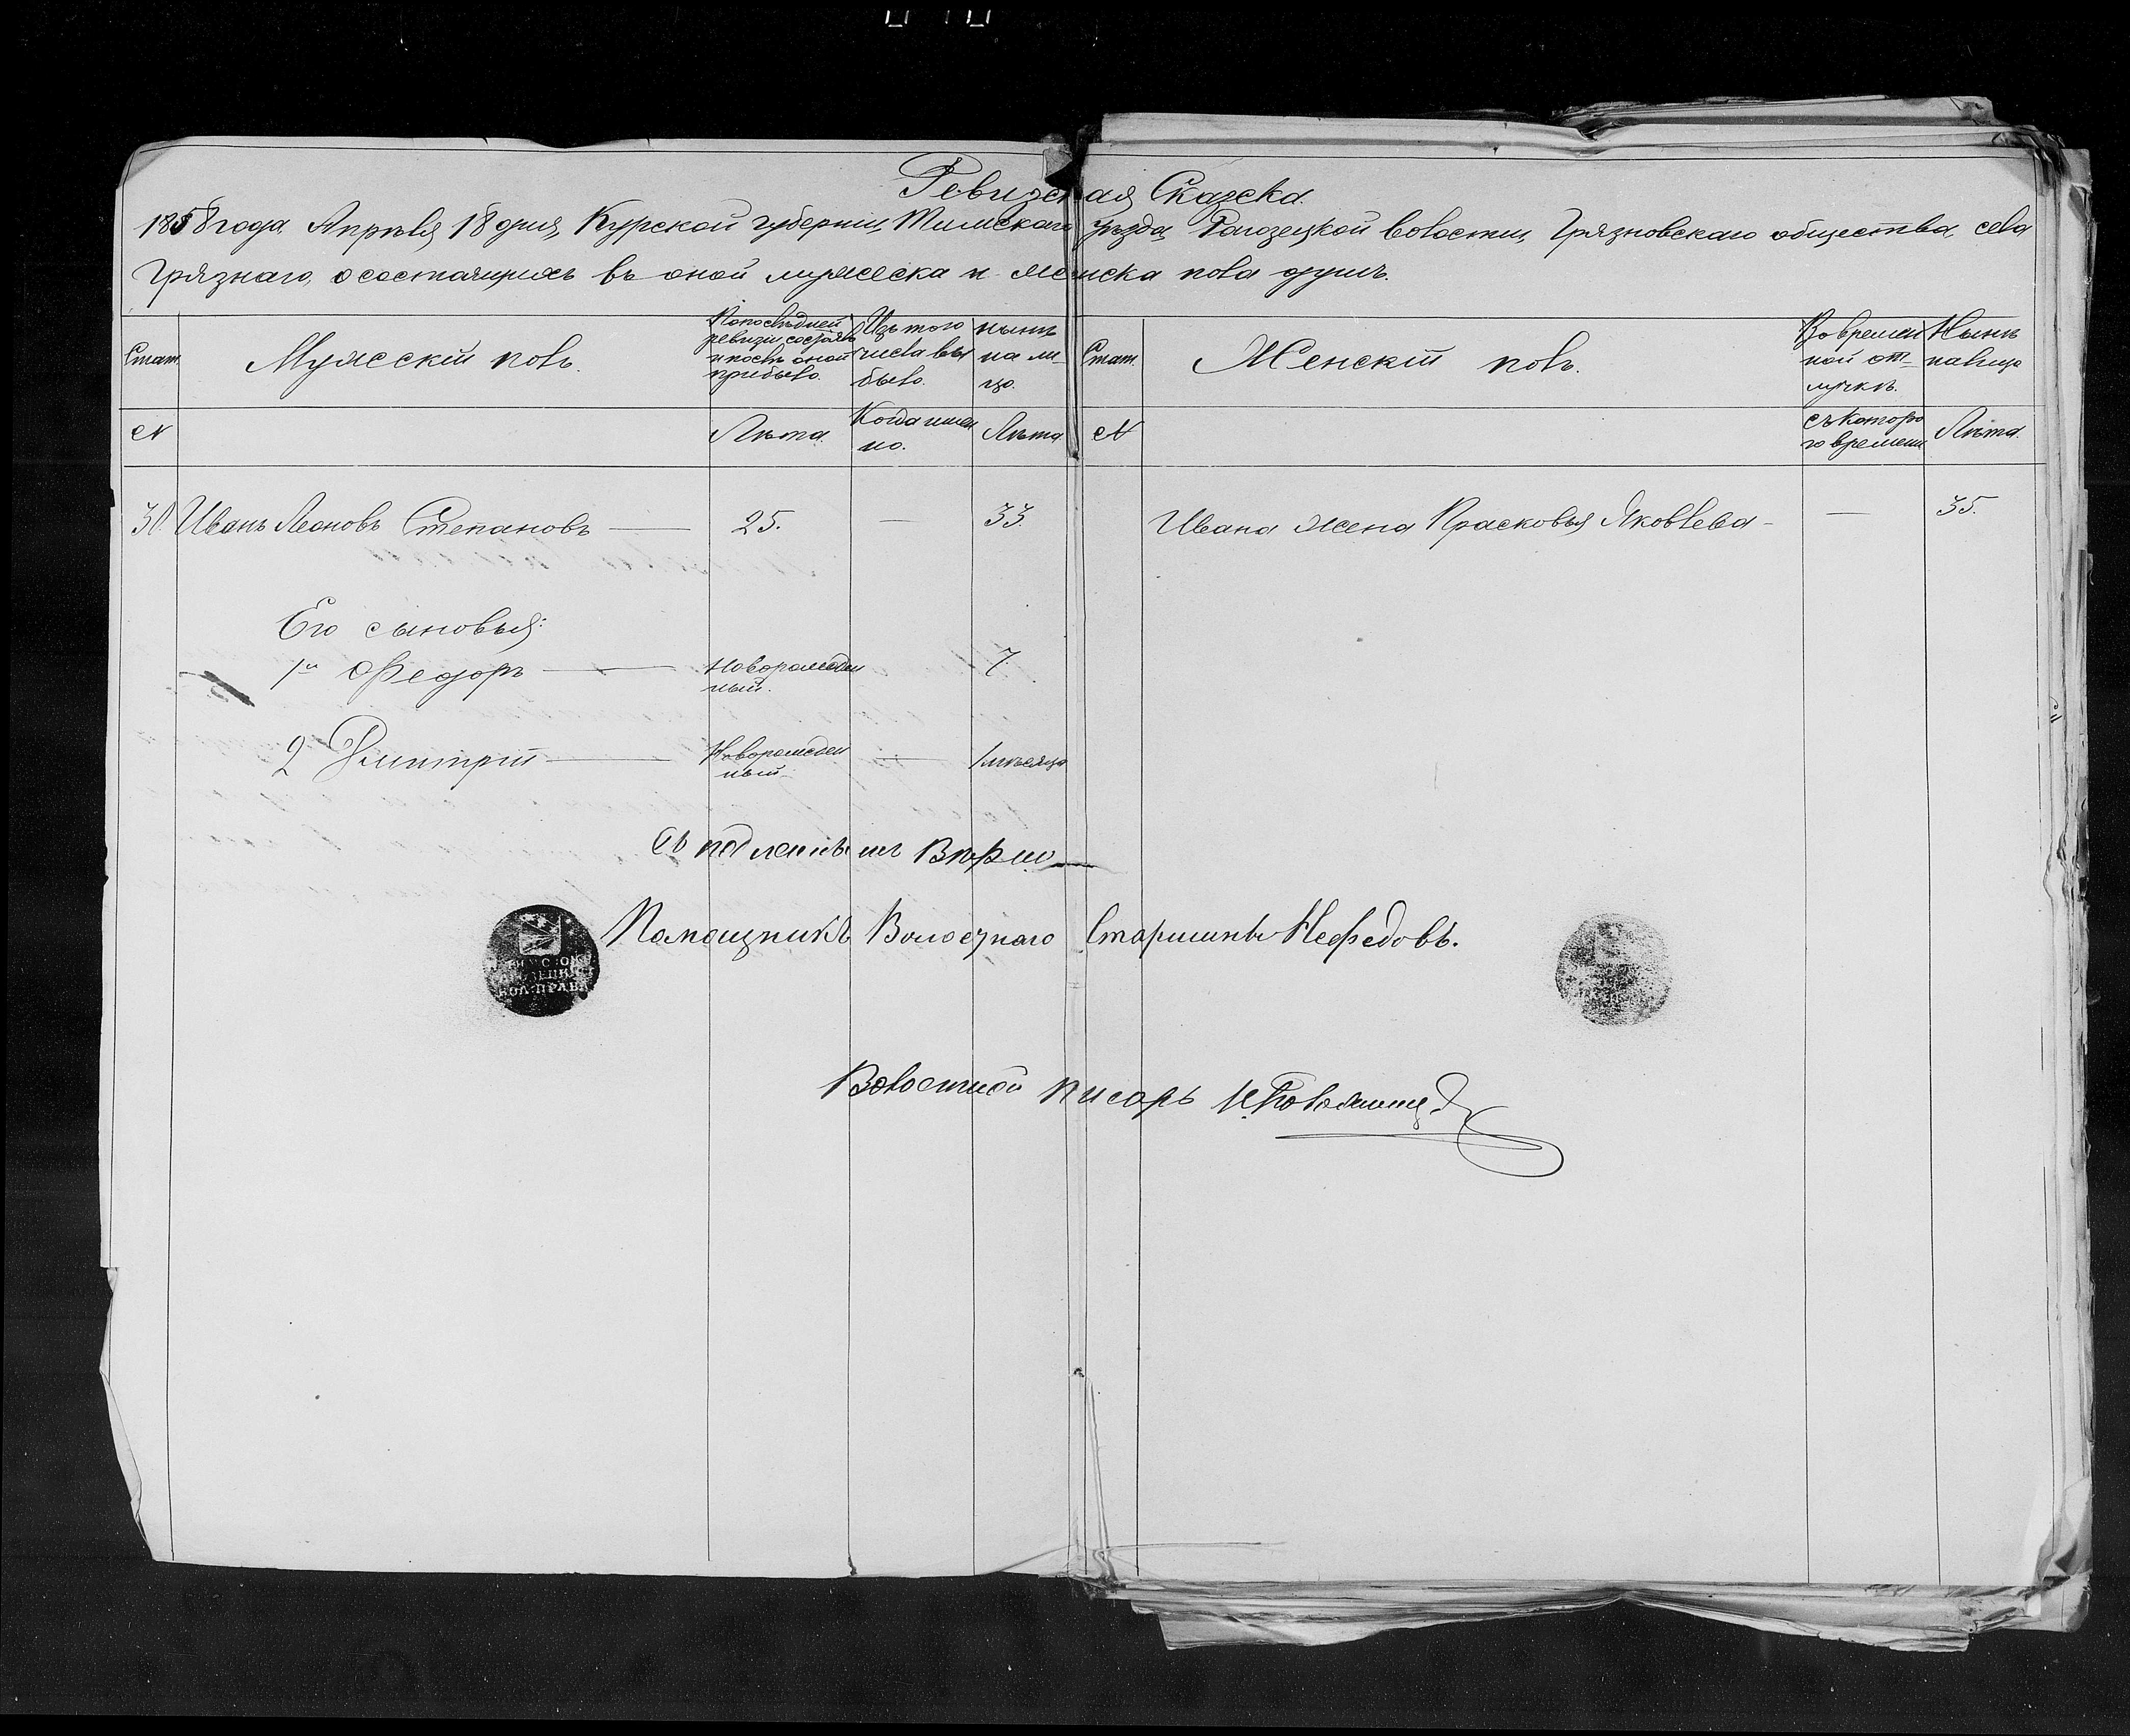 Ревизская Сказска.
1858 года Апрѣля 18 дня, Курской губернiи, Тимскаго уѣзда, Рогозецкой волости, Грязновскаго общества, села
Грязнаго, о состаящихъ въ оной мужеска и женска пола душъ.
Стат. Мужескiй полъ. Стат. Женскiй полъ.
По последней ревизiи состояло и послѣ оной прибыло.
Изъ того числа вы было.
нынѣ на ли- цо.
Во времен ной от- лучкѣ.
Нынѣ налицо
№ Лѣта. Когда имен но. Лѣта № съ которо го времени Лѣта.
30. Иванъ Леоновъ Степановъ — 25. — 33. Ивана жена Прасковья Яковлева — — 35.
Его сыновья:
1й Федоръ — Новорожден ный. 7.
2 Дмитрiй — Новорожден ный — 1 мѣсяца
Съ подленнымъ вѣрно
Помощникъ Волостнаго Старшины Нефедовъ.
ВОЛ. ПРАВЛ
Волостной писарь